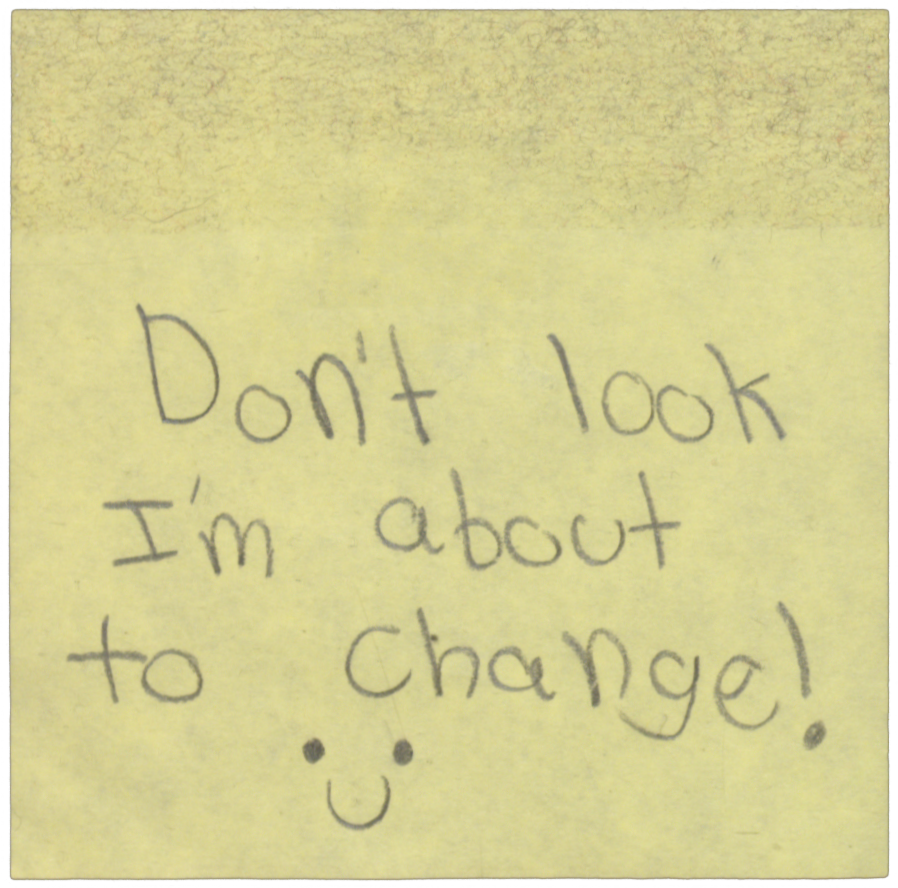 Don't look
I'm about
to change!